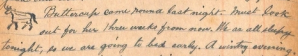 Buttercup came round last night. Must look
out for her three weeks from now. We are all sleepy
tonight, so we are going to bed early. A windy evening.